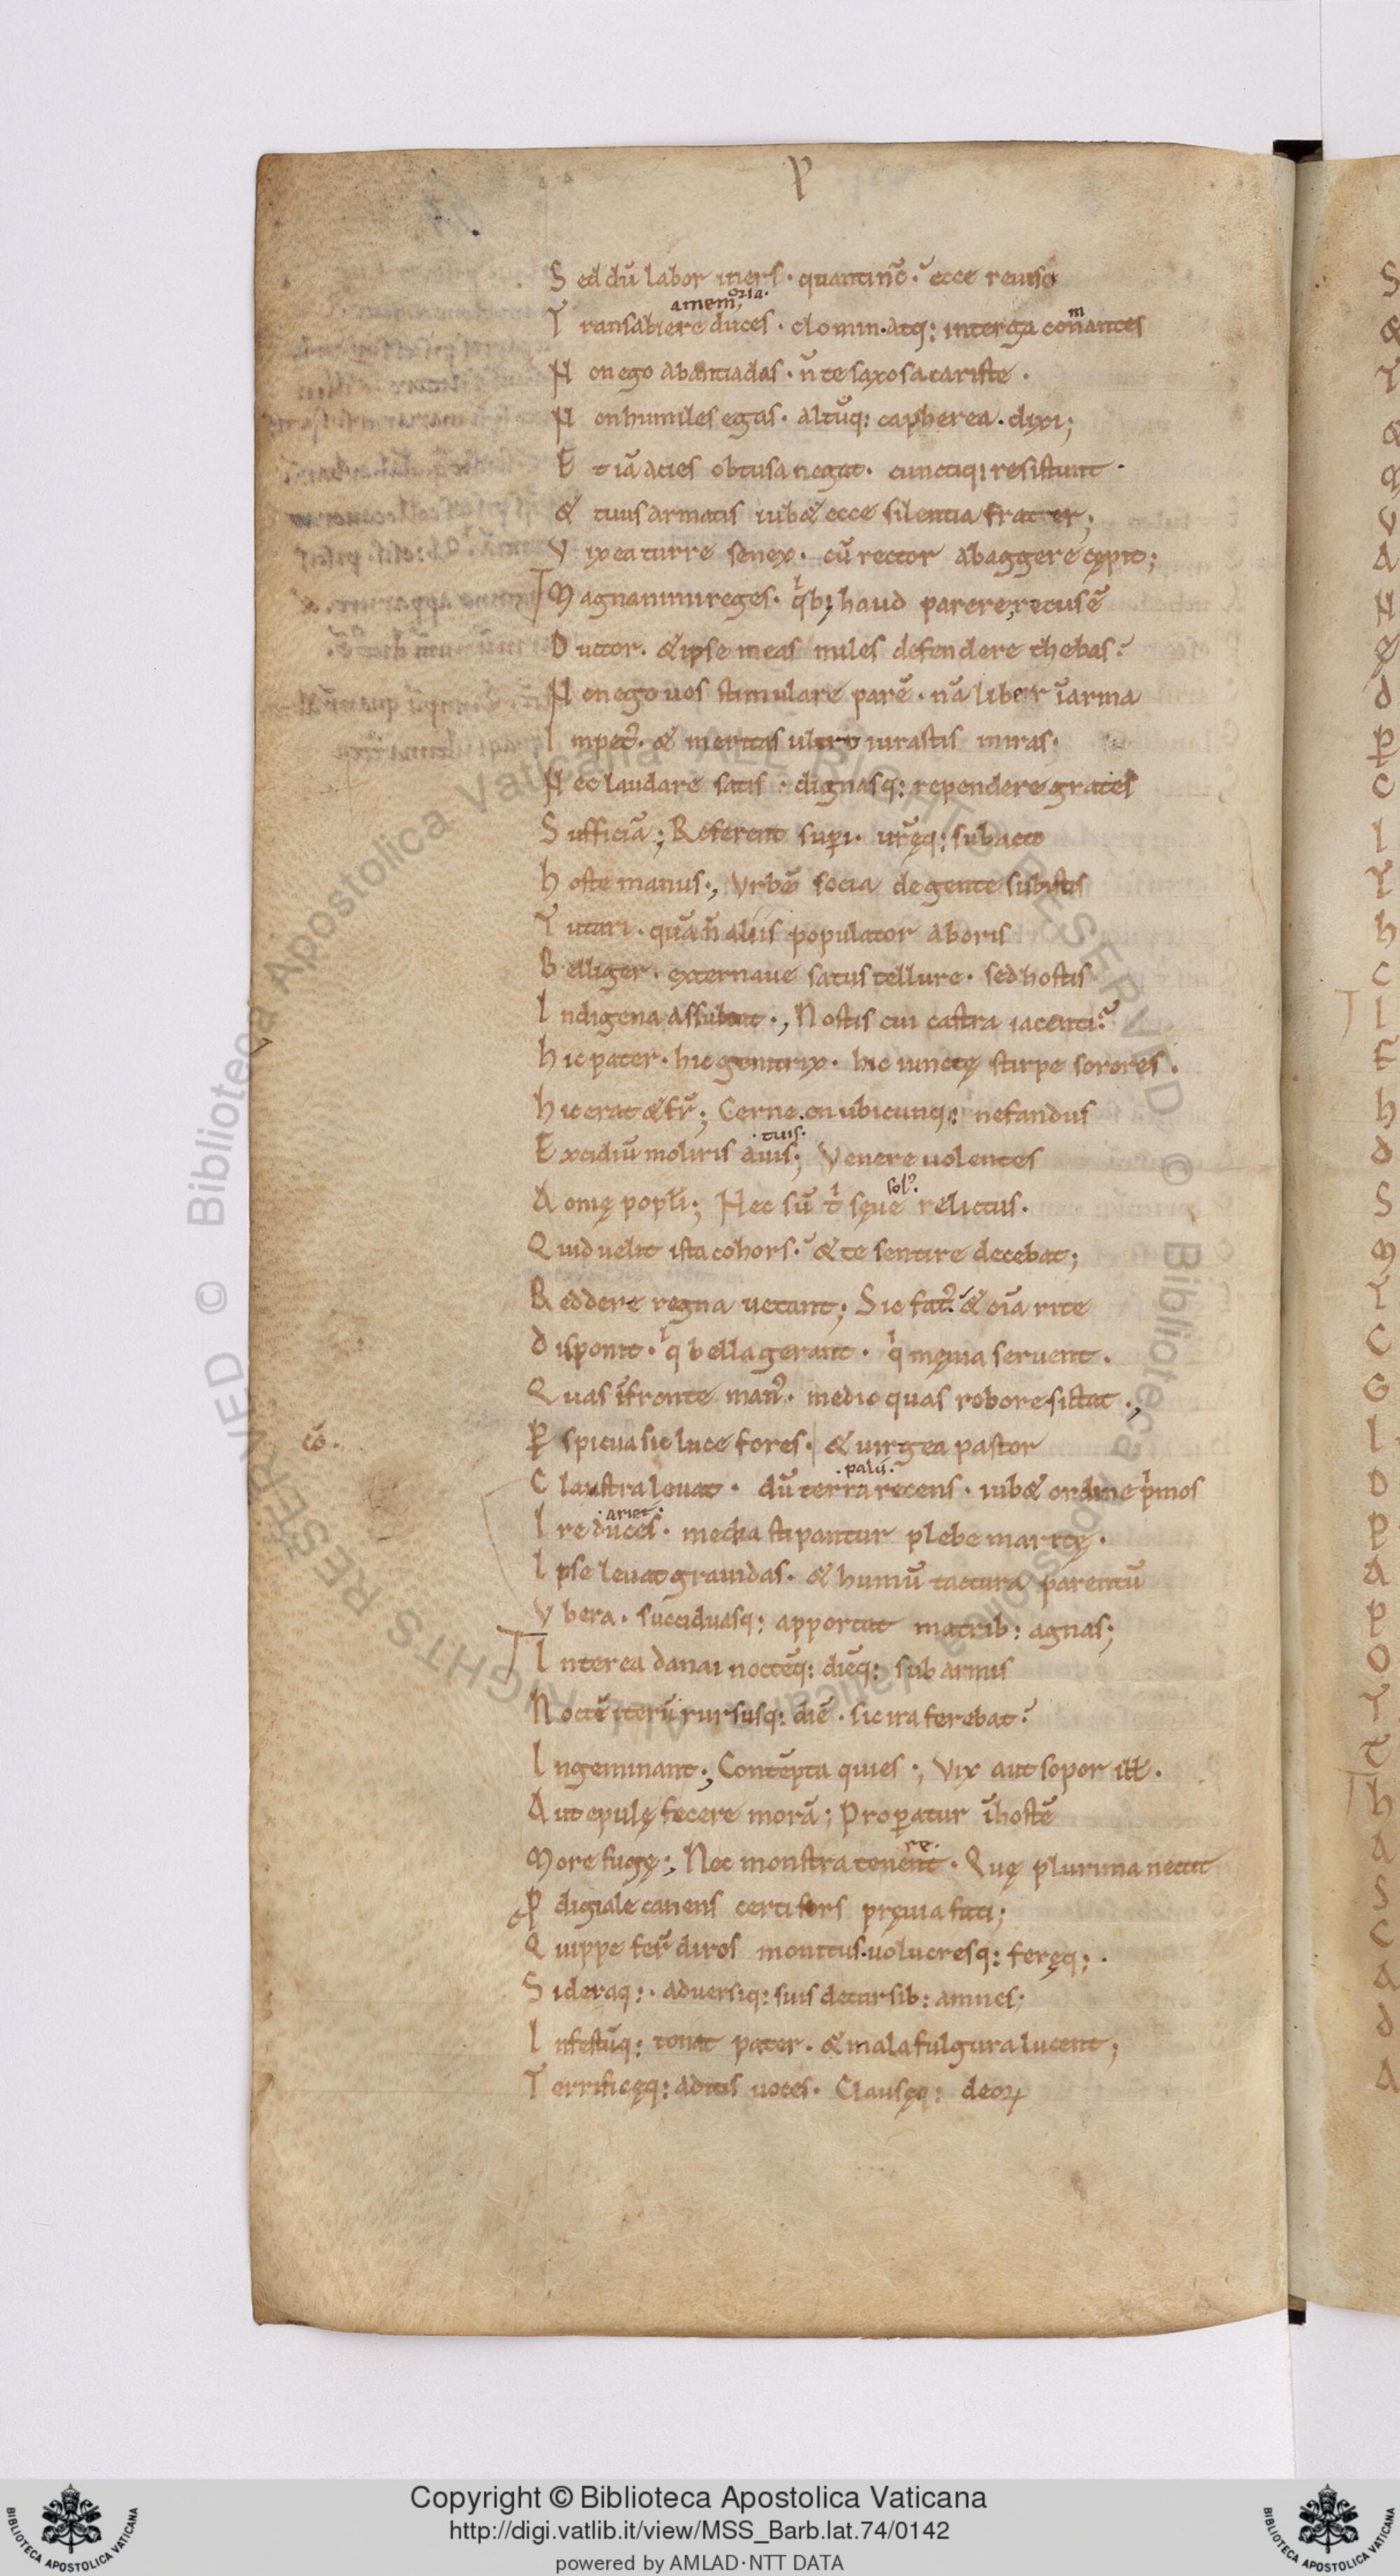 P
S ed dũ labor iners · quanti nc̃ · ecce reuiso
amem oria·
T ransabiere duces · clomin · atq: interga comantes
m
N on ego abantiadas · ñ te saxosa cariste ·
N on humiles egas · altũq: capherea · dixi;
E t iã acies obtusa negat · cunctiq: resistunt ·
& tuus armatis iub& ecce silentia frater;
V ix ea turre senex · cũ rector ab aggere cępit;
M agnanimi reges · qͥb; haud parere recusẽ
D uctor · & ipse meas miles defendere thebas
N on ego uos stimulare parẽ · nã liber ĩ arma
I mpet᷒ · & meritas ultro iurastis in iras ·
N ec laudare satis · dignasq: rependere grates
S ufficiã; Referent suꝑi · ur̃ęq: subacto
h oste manus ·, Vrbẽ socia de gente subistis
T utari · quã ñ aliis populator ab oris
B elliger · externaue satus tellure · sed hostis
I ndigena assultat ·, Nostis cui castra iacenti
h ic pater · hic genitrix · hic iunctę stirpe sorores ·
h ic erat & fr̃; Cerne · en ubicunq: nefandus
· tuis ·
E xcidiũ moliris auis; Venere uolentes
sol᷒ ·
A onię popl̃i; Nec sũ tͥ sęue relictus ·
Q uid uelit ista cohors · & te sentire decebat;
R eddere regna uetant; Sic fat᷒ & oĩa rite
D isponit · qͥ bella gerant · qͥ męnia seruent ·
Q uas ĩ fronte man᷒ · medio quas robore sistat ·,
cõ ·
P spicua sic luce fores · & uirgea pastor
· palii ·
C laustra leuat · dũ terra recens · iub& ordine pͥmos
· ariet ·
I re duces · media stipantur plebe maritę ·
I pse leuat grauidas · & humũ tactura parentũ
V bera · succiduasq: apportat matrib: agnas;
I nterea danai noctẽq: diẽq: sub armis
N octẽ iterũ rursusq: diẽ · sic ira ferebat
I ngeminant ·, Contẽpta quies ·, Vix aut sopor ill̃ ·
A ut epulę fecere morã; Proꝑatur ĩ hostẽ
re ·
M ore fugę ·, Nec monstra tenent · Quę plurima nectit
P digiale canens certi fors pręuia fati;
Q uippe fer̃ diros monitus · uolucresq: feręq: ·
S ideraq: · aduersiq: suis decursib: amnes;
I nfestũq: tonat pater · & mala fulgura lucent;
T errificęq: aditis uoces · Clausęq: deoꝝ
Copyright © Biblioteca Apostolica Vaticana
http://digi.vatlib.it/view/MSS_Barb.lat.74/0142
powered by AMLAD·NTT DATA